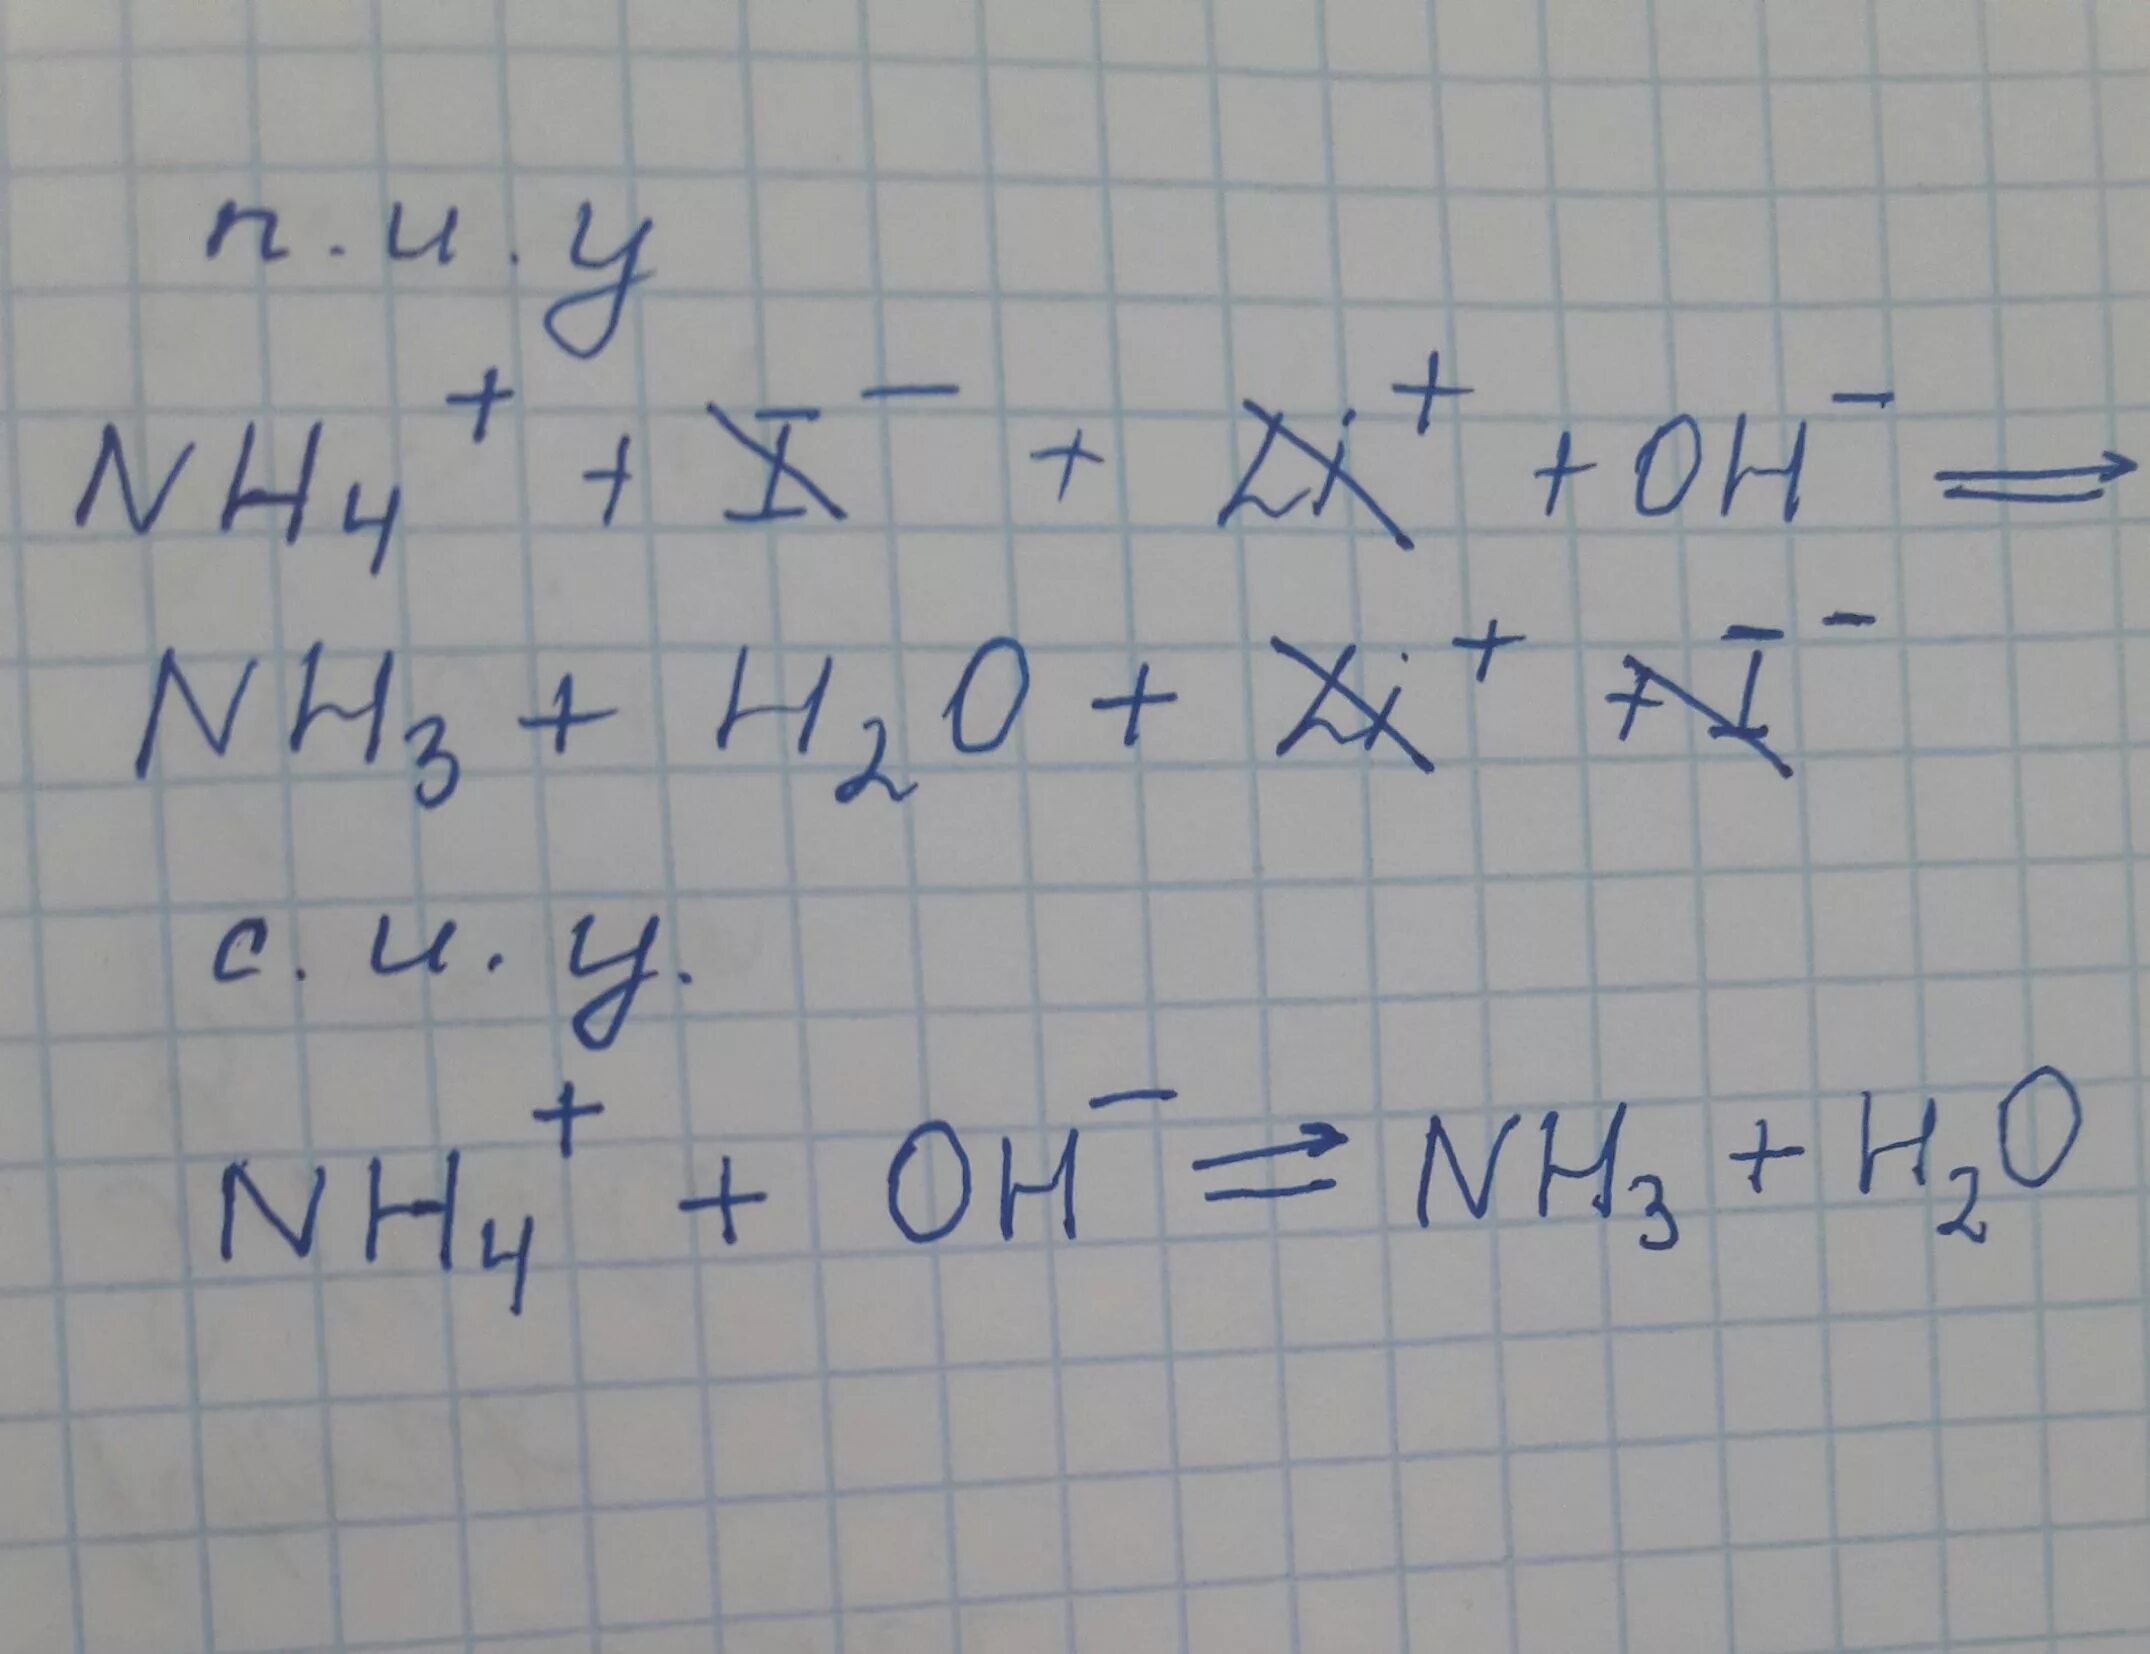 п.и.у
NH₄⁺ + I⁻ + Li⁺ + OH⁻ ⇒
NH₃ + H₂O + Li⁺ + I⁻
с.и.у.
NH₄⁺ + OH⁻ ⇒ NH₃ + H₂O